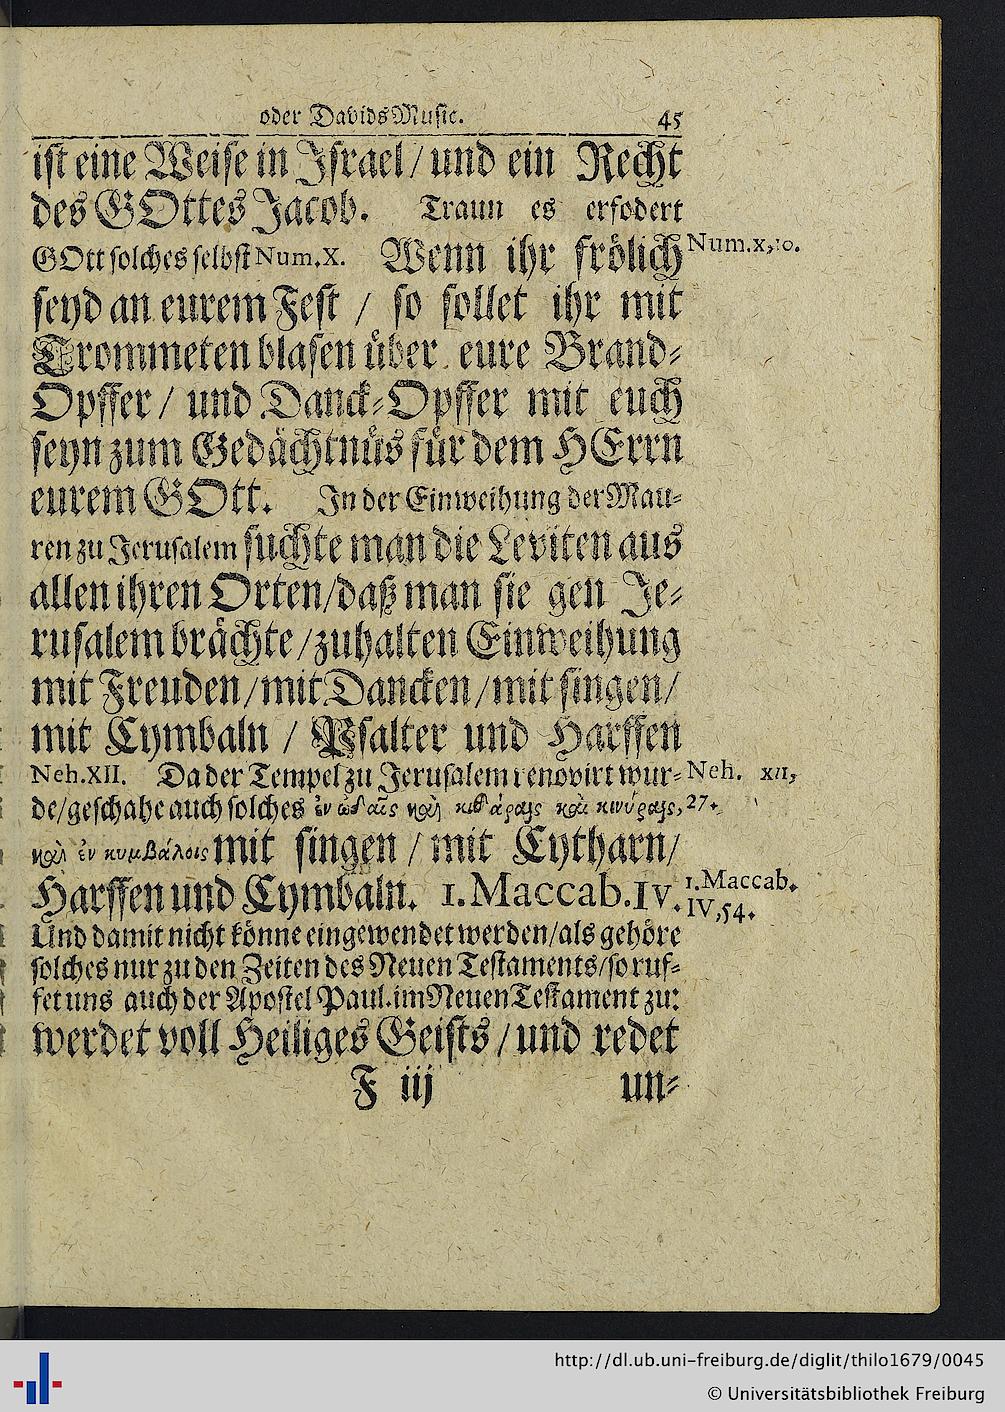 oder Davids Music.
45
ist eine Weise in Israel / und ein Recht
des GOttes Jacob. Traun es erfodert
GOtt solches selbst Num. X. Wenn ihr frölich
Num. x, 10.
seyd an eurem Fest / so sollet ihr mit
Trommeten blasen über eure Brand-
Opffer / und Danck-Opffer mit euch
seyn zum Gedächtnüs für dem HErrn
eurem GOtt. In der Einweihung der Mau-
ren zu Jerusalem suchte man die Leviten aus
allen ihren Orten / daß man sie gen Je-
rusalem brächte / zuhalten Einweihung
mit Freuden / mit Dancken / mit singen /
mit Cymbaln / Psalter und Harffen
Neh. XII. Da der Tempel zu Jerusalem renovirt wur-
Neh. XII,
de / geschahe auch solches ἐν ὠδαῖς καὶ κιθάραις καὶ κινύραις,
27.
καὶ ἐν κυμβάλοις mit singen / mit Cytharn /
Harffen und Cymbaln. 1. Maccab. IV.
1. Maccab.
IV, 54.
Und damit nicht könne eingewendet werden / als gehöre
solches nur zu den Zeiten des Neuen Testaments / so ruf-
fet uns auch der Apostel Paul. im Neuen Testament zu:
werdet voll Heiliges Geists / und redet
F iij
un-
http://dl.ub.uni-freiburg.de/diglit/thilo1679/0045
© Universitätsbibliothek Freiburg